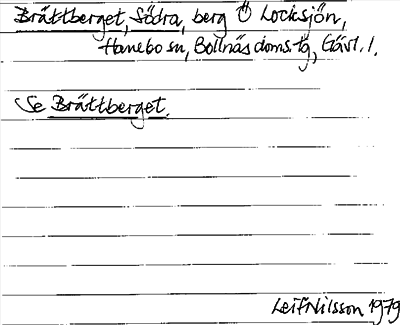 Brättberget, Södra, berg Ö Locksjön,
Hanebo sn, Bollnäs doms.tg, Gävl. l.
Se Brättberget.
Leif Nilsson 1979